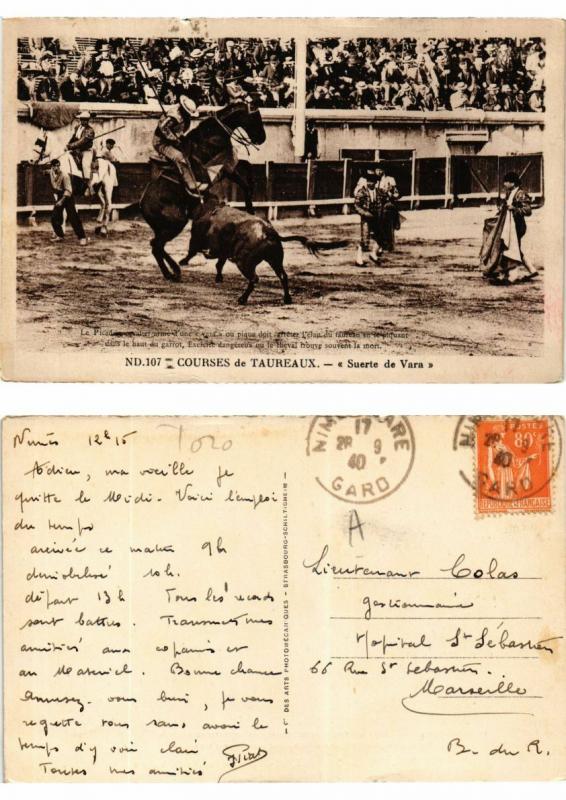 Le Picador
ou pique doit arrêter l'élan du taureau en le piquant
dans le haut du garrot, Exercice dangereux où le cheval trouve souvent la mort.
ND.107 — COURSES de TAUREAUX. — « Suerte de Vara »
Nîmes 12h15
Toro
Adieu, ma vieille je
quitte le Midi. Voici l'emploi
du temps
arrivée ce matin 9h
démobilisé 10h.
départ 13h Tous les records
sont battus. Transmettez mes
amitiés aux copains et
au Matériel. Bonne chance
Amusez-vous bien, je vous
regrette tous sans avoir le
temps d'y voir clair
Toutes mes amitiés
DES ARTS PHOTOMÉCANIQUES - STRASBOURG-SCHILTIGHEIM
NIMES GARE
17
28 9
40
GARD
NIMES GARE
17
28 9
40
GARD
POSTES
80c
REPUBLIQUE FRANÇAISE
A
Lieutenant Colas
gestionnaire
Hopital St Sébastien
66 Rue St Sébastien
Marseille
B. du R.